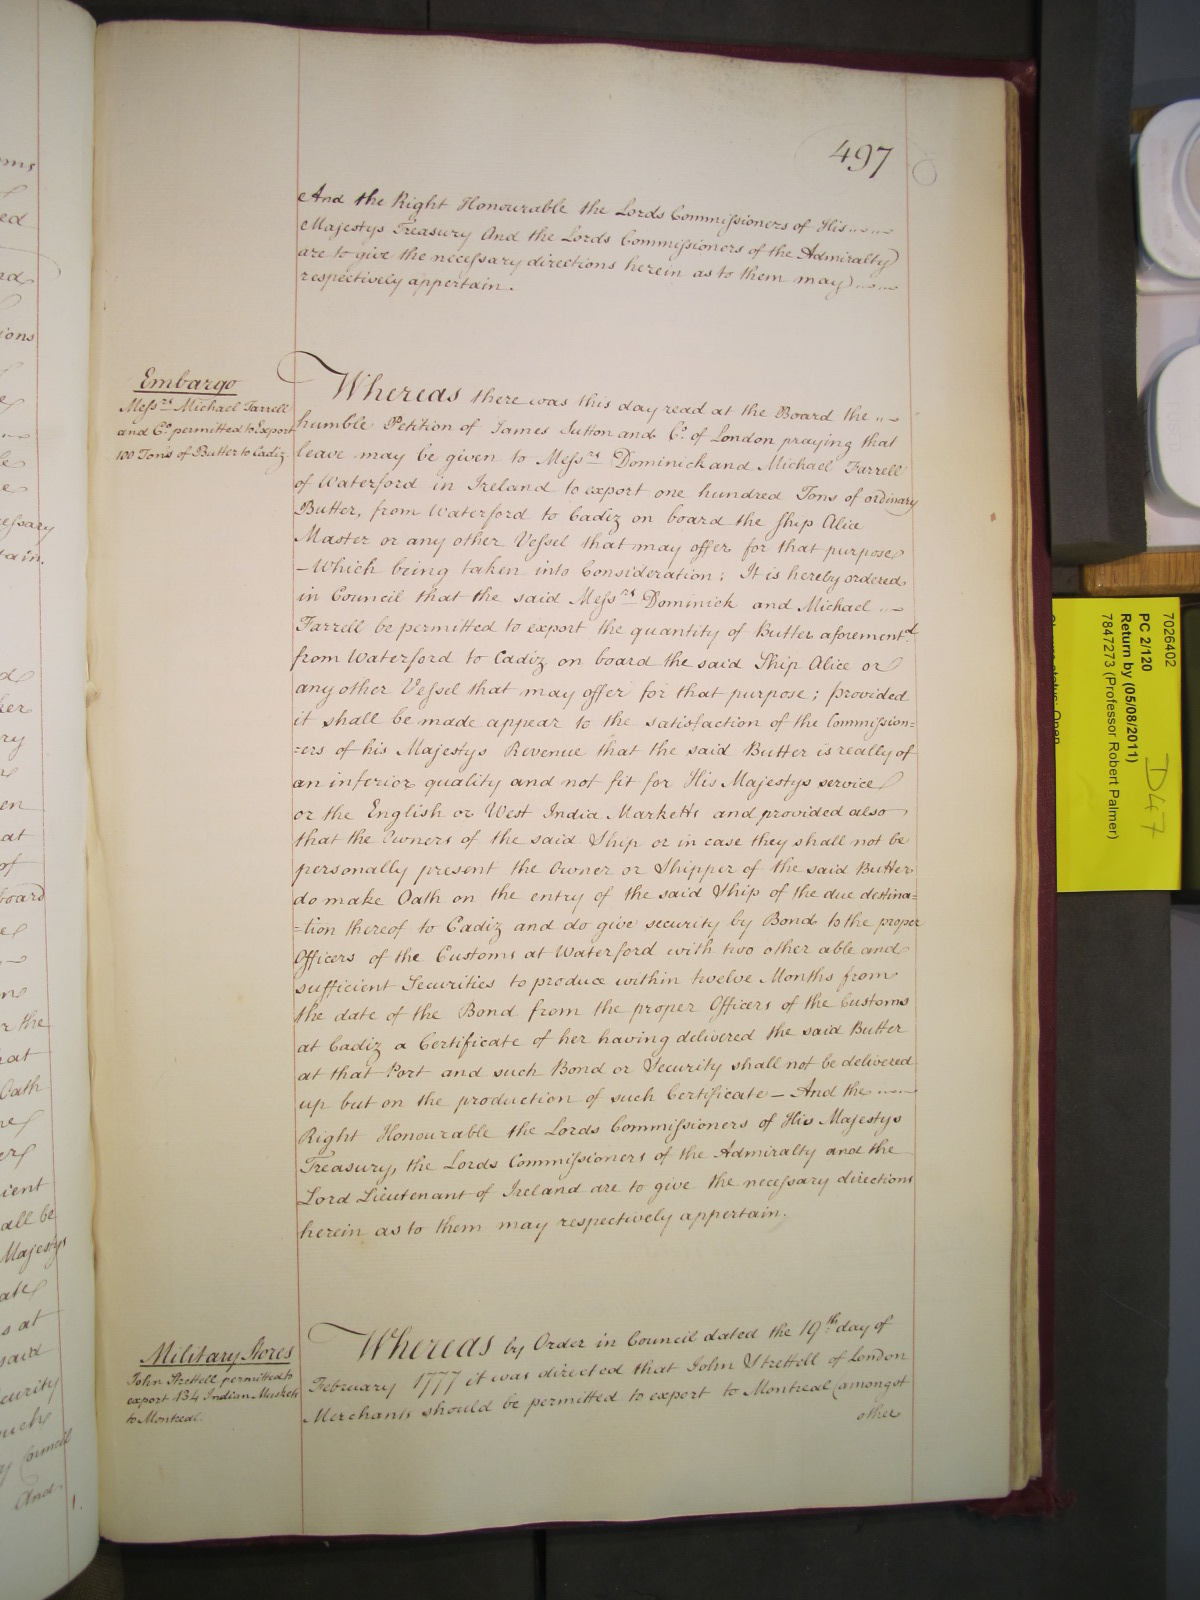 497
And the Right Honourable the Lords Commissioners of His
Majestys Treasury And the Lords Commissioners of the Admiralty
are to give the necessary directions herein as to them may
respectively appertain.
Embargo
Messrs Michael Farrell
and Co permitted to Export
100 Tons of Butter to Cadiz
Whereas there was this day read at the Board the
humble Petition of James Sutton and Co. of London praying that
leave may be given to Messrs Dominick and Michael Farrell
of Waterford in Ireland to export one hundred Tons of ordinary
Butter, from Waterford to Cadiz on board the Ship Alice
Master or any other Vessel that may offer for that purpose
–Which being taken into Consideration; It is hereby ordered
in Council that the said Messrs Dominick and Michael
Farrell be permitted to export the quantity of Butter aforementd
from Waterford to Cadiz on board the said Ship Alice or
any other Vessel that may offer for that purpose; provided
it shall be made appear to the satisfaction of the Commission=
=ers of his Majestys Revenue that the said Butter is really of
an inferior quality and not fit for His Majestys service
or the English or West India Marketts and provided also
that the Owners of the said Ship or in case they shall not be
personally present the Owner or Shipper of the said Butter
do make Oath on the entry of the said Ship of the due destina=
=tion thereof to Cadiz and do give security by Bond to the proper
Officers of the Customs at Waterford with two other able and
sufficient Securities to produce within twelve Months from
the date of the Bond from the proper Officers of the Customs
at Cadiz a Certificate of her having delivered the said Butter
at that Port and such Bond or Security shall not be delivered
up but on the production of such Certificate – And the
Right Honourable the Lords Commissioners of His Majestys
Treasury, the Lords Commissioners of the Admiralty and the
Lord Lieutenant of Ireland are to give the necessary directions
herein as to them may respectively appertain.
Military Stores
John Strettell permitted to
export 134 Indian Muskets
to Montreal.
Whereas by Order in Council dated the 19th day of
February 1777 it was directed that John Strettell of London
Merchants should be permitted to export to Montreal (amongst
other
7026402
PC 2/120
Return by (05/08/2011)
7847273 (Professor Robert Palmer)
D47